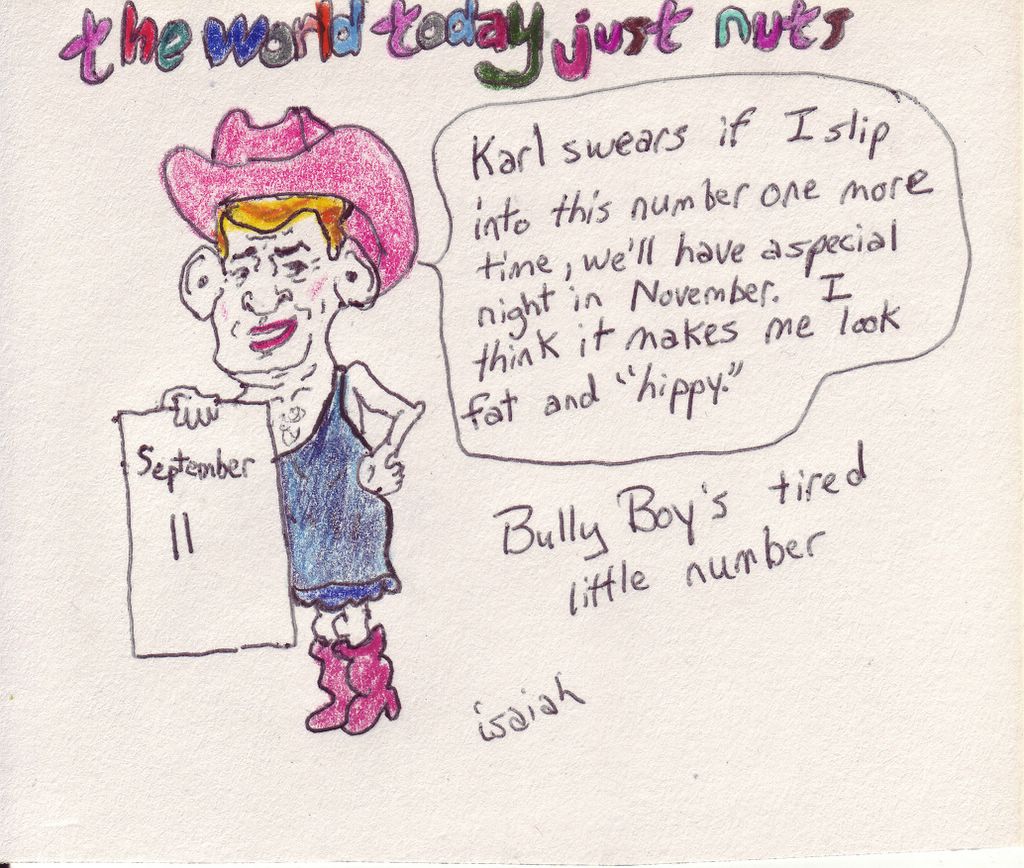 the world today just nuts
Karl swears if I slip
into this number one more
time, we'll have a special
night in November. I
think it makes me look
fat and "hippy."
September
11
Bully Boy's tired
little number
isaiah